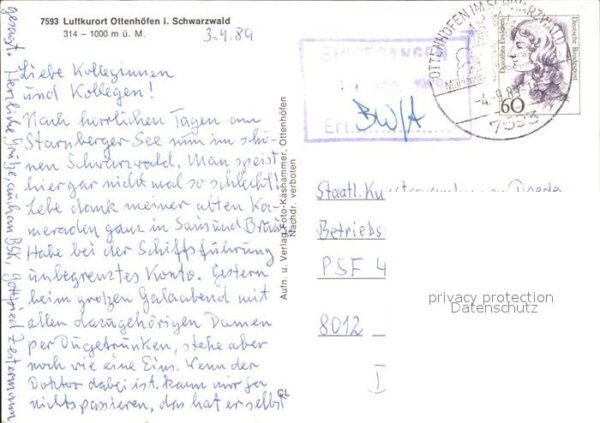 7593 Luftkurort Ottenhöfen i. Schwarzwald
314 – 1000 m ü. M.
3.9.89
Liebe Kolleginnen
und Kollegen!
Nach herrlichen Tagen am
Starnberger See nun im schö-
nen Schwarzwald. Man speist
hier gar nicht mal so schlecht!
Lebe dank meiner alten Ka-
meraden ganz in Saus und Braus
Habe bei der Schiffsführung
unbegrenztes Konto. Gestern
beim großen Galaabend mit
allen dazugehörigen Damen
per Du getrunken, stehe aber
noch wie eine Eins. Wenn der
Doktor dabei ist, kann mir ja
nichts passieren, das hat er selbst
gesagt. Herzliche Grüße auch an BSK, Gottfried Zestermann
Aufn. u. Verlag Foto-Käshammer, Ottenhöfen
Nachdr. verboten
CL
EINGEGANGEN
Erl.
BWA
OTTENHÖFEN IM SCHWARZWALD
-4.-9.89
7593
Dorothea Erxleben
Deutsche Bundespost
60
Staatl.
Betriebs
PSF 4
8012
privacy protection
Datenschutz